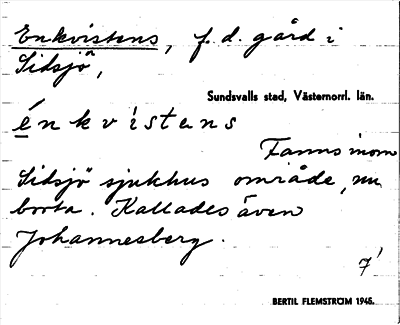 Enkvistens, f.d. gård i
Sidsjö,
Sundsvalls stad, Västernorrl. län.
énkvístens
Fanns inom
Sidsjö sjukhus område, nu
borta. Kallades även
Johannesberg.
7'
BERTIL FLEMSTRÖM 1945.